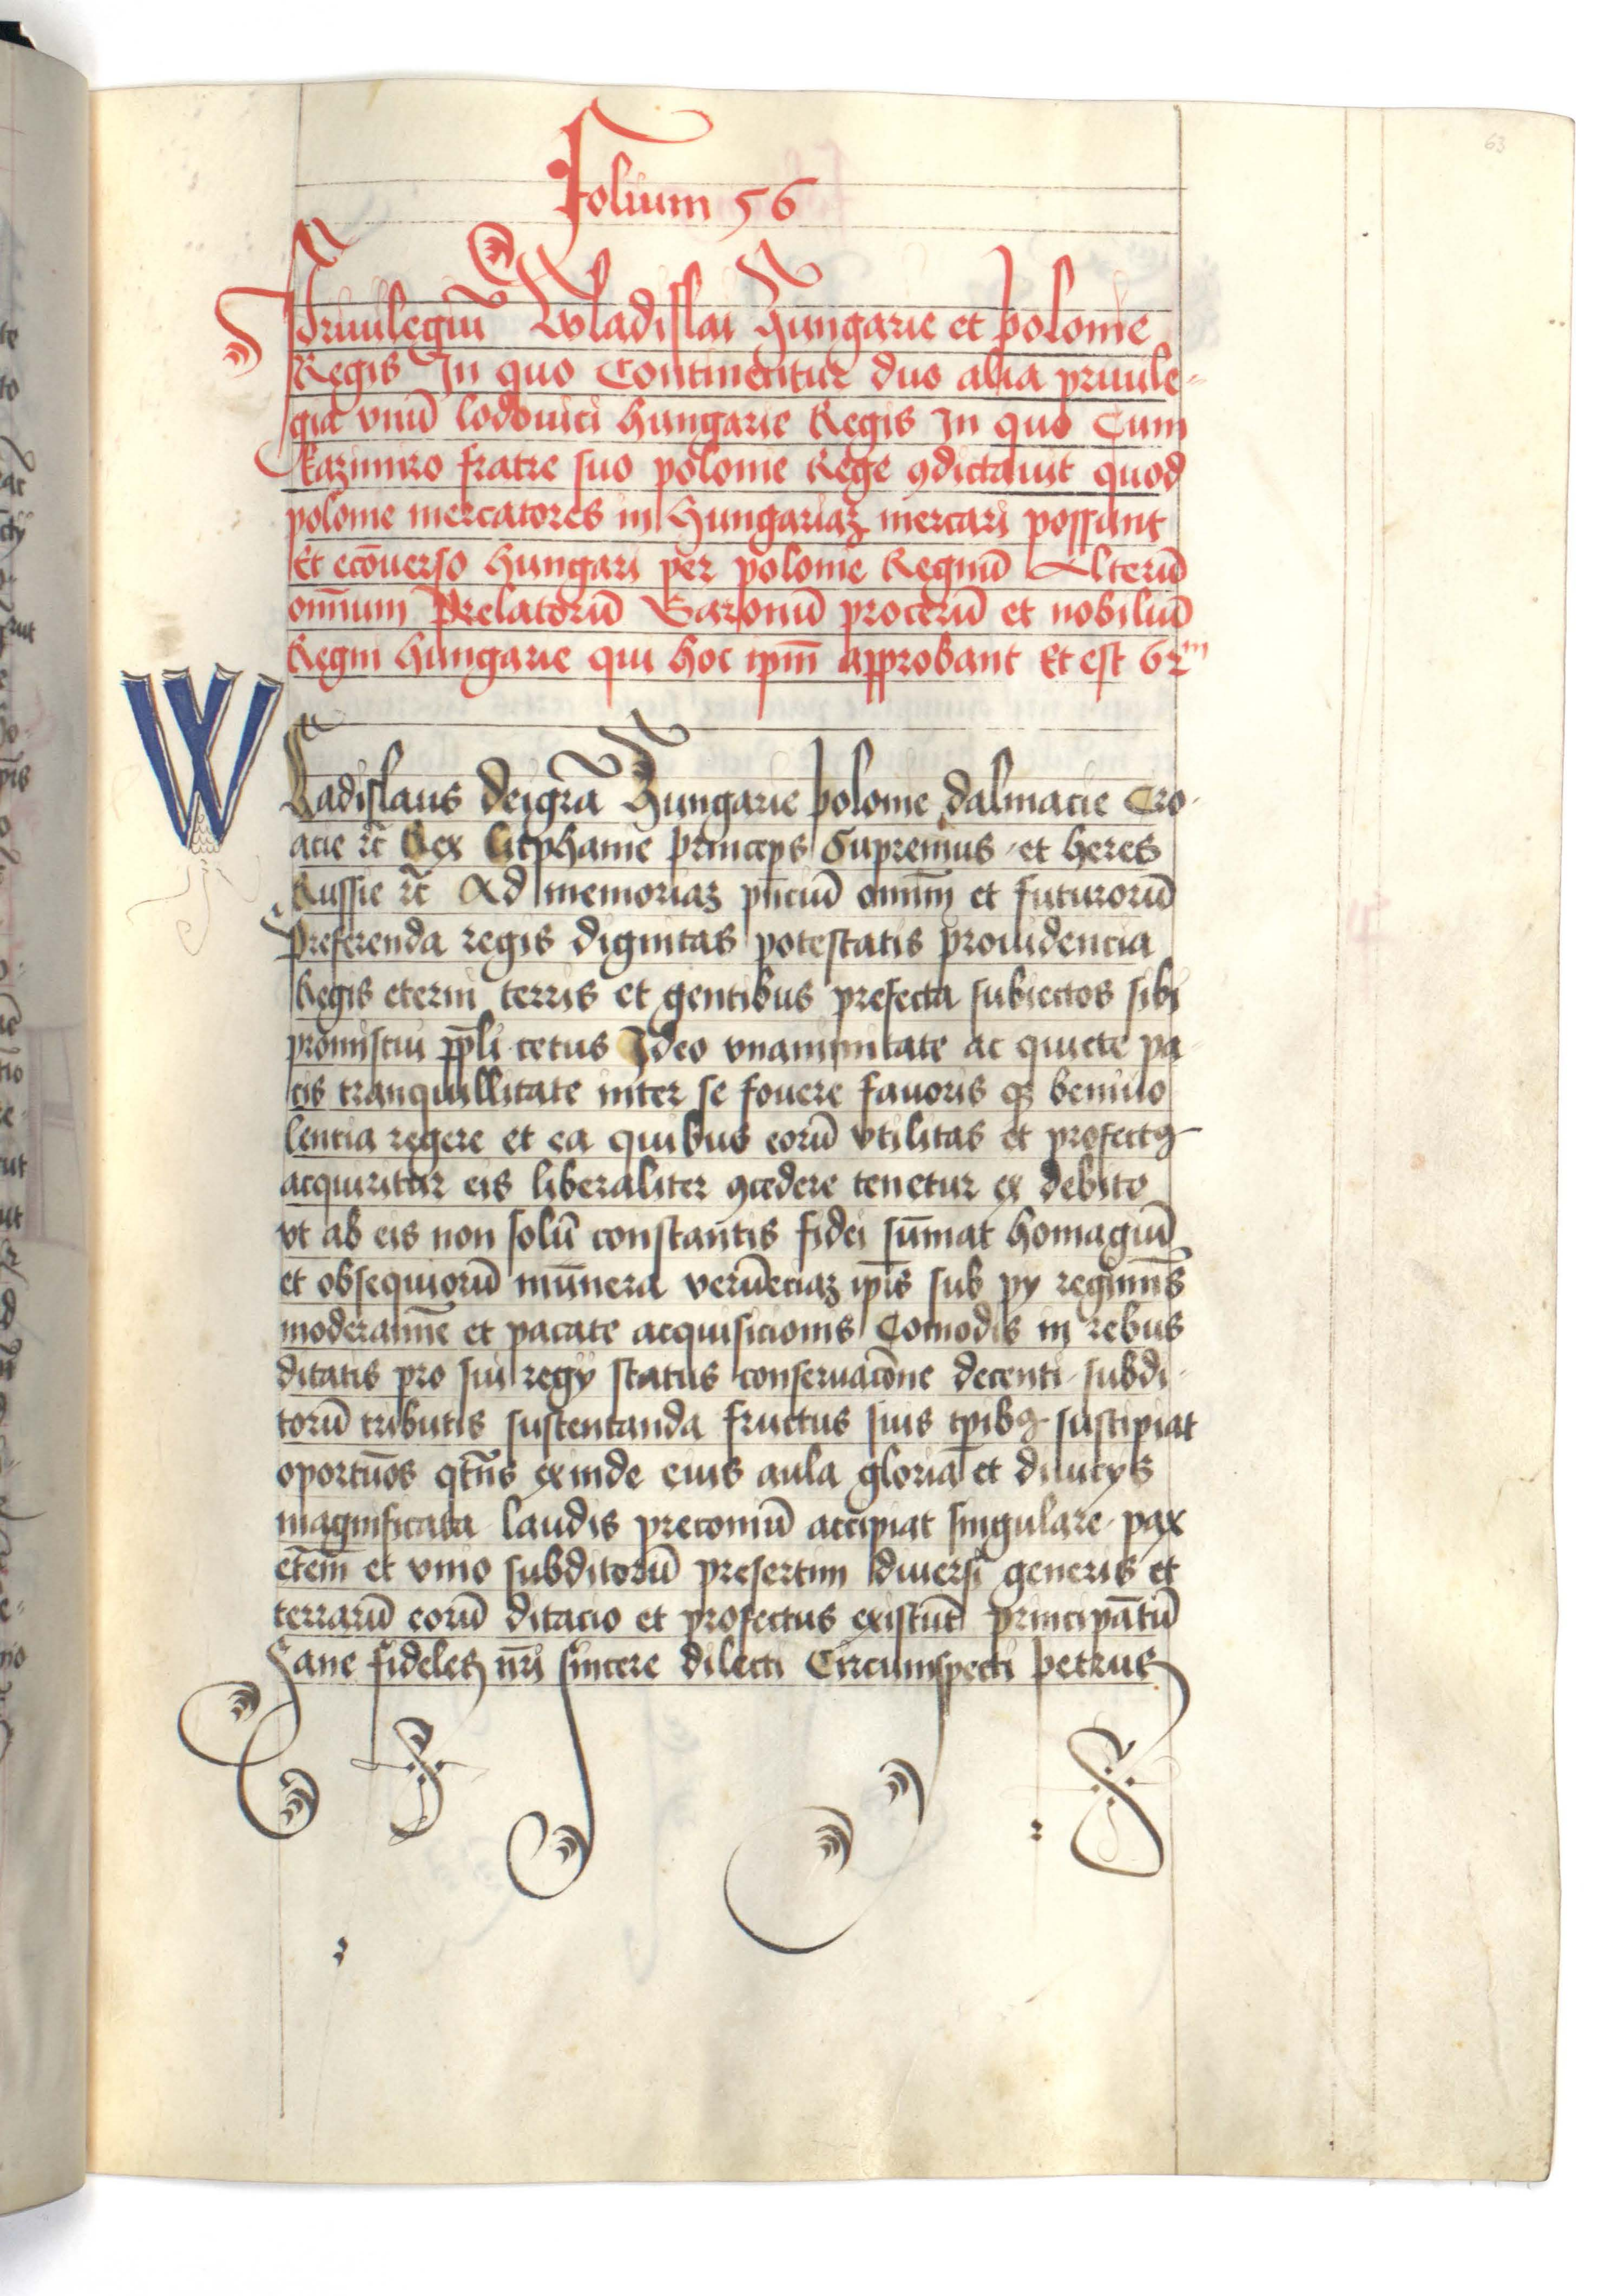 63
Folium 56
Priuilegiū Wladislai Hungarie et polonie
Regis In quo Continentur duo alia priuile-
gia vnū lodouici hungarie Regis In quo Cum
kazimiro fratre suo polonie Rege ꝯdictauit quod
polonie mercatores in Hungariaꝫ mercari possunt
Et ecōuerso hungari per polonie Regnū Alterū
om̄ium Prelatorū Baronū procerū et nobiliū
Regni hungarie qui hoc ip̄m approbant Et est 62ᵐ
Wladislaus dei gr̄a Hungarie polonie dalmacie Cro-
acie ꝛc̄ Rex litphanie princeps Supremus et heres
Russie ꝛc̄ Ad memoriaꝫ pn̄ciū om̄im et futurorū
Preferenda regis dignitas potestatis prouidencia
Regis eterni terris et gentibus prefecta subiectos sibi
promiscui pp̄li cetus Ideo vnanimitate ac quiete pa-
cis tranquillitate inter se fouere fauoris qꝫ beniuo
lentia regere et ea quibus eorū vtilitas et profectꝰ
acquiritur eis liberaliter ꝯcedere tenetur ex debito
vt ab eis non solū constantis fidei sūmat homagiū
et obsequiorū mūnera verūeciaꝫ ip̄is sub py regimīs
moderamīe et pacate acquisicionis Comodis in rebus
ditatis pro sui regÿ status conseruacōne decenti subdi-
torū tributis sustentanda fructus suis tp̄ibꝰ suscipiat
oportūos qt̄n̄s exinde eius aula gloria et diuicÿs
magnificata laudis preconiū accipiat singulare pax
etem̄ et vnio subditorū presertim diuersi generis et
terrarū eorū ditacio et profectus existūt principātū
Sane fideles nr̄i sincere dilecti Circumspecti petrus